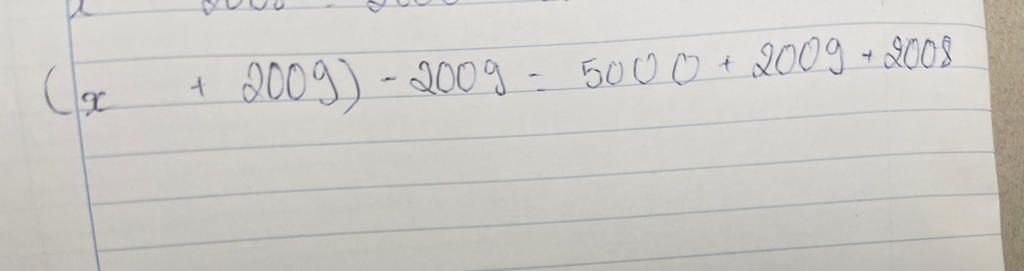 (x + 2009) - 2009 = 5000 + 2009 + 2008